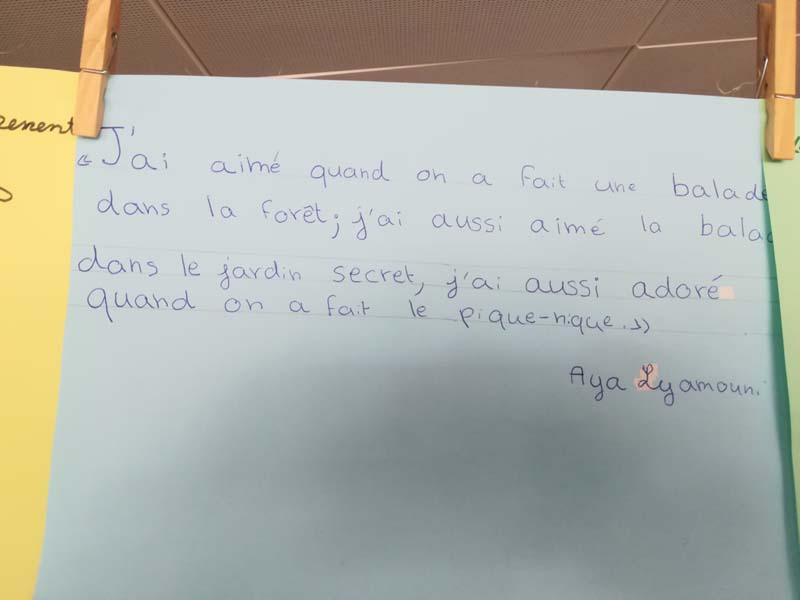 « J'ai aimé quand on a fait une balade
dans la forêt; j'ai aussi aimé la
dans le jardin secret, j'ai aussi adoré
quand on a fait le pique-nique. »
Aya Lyamouni